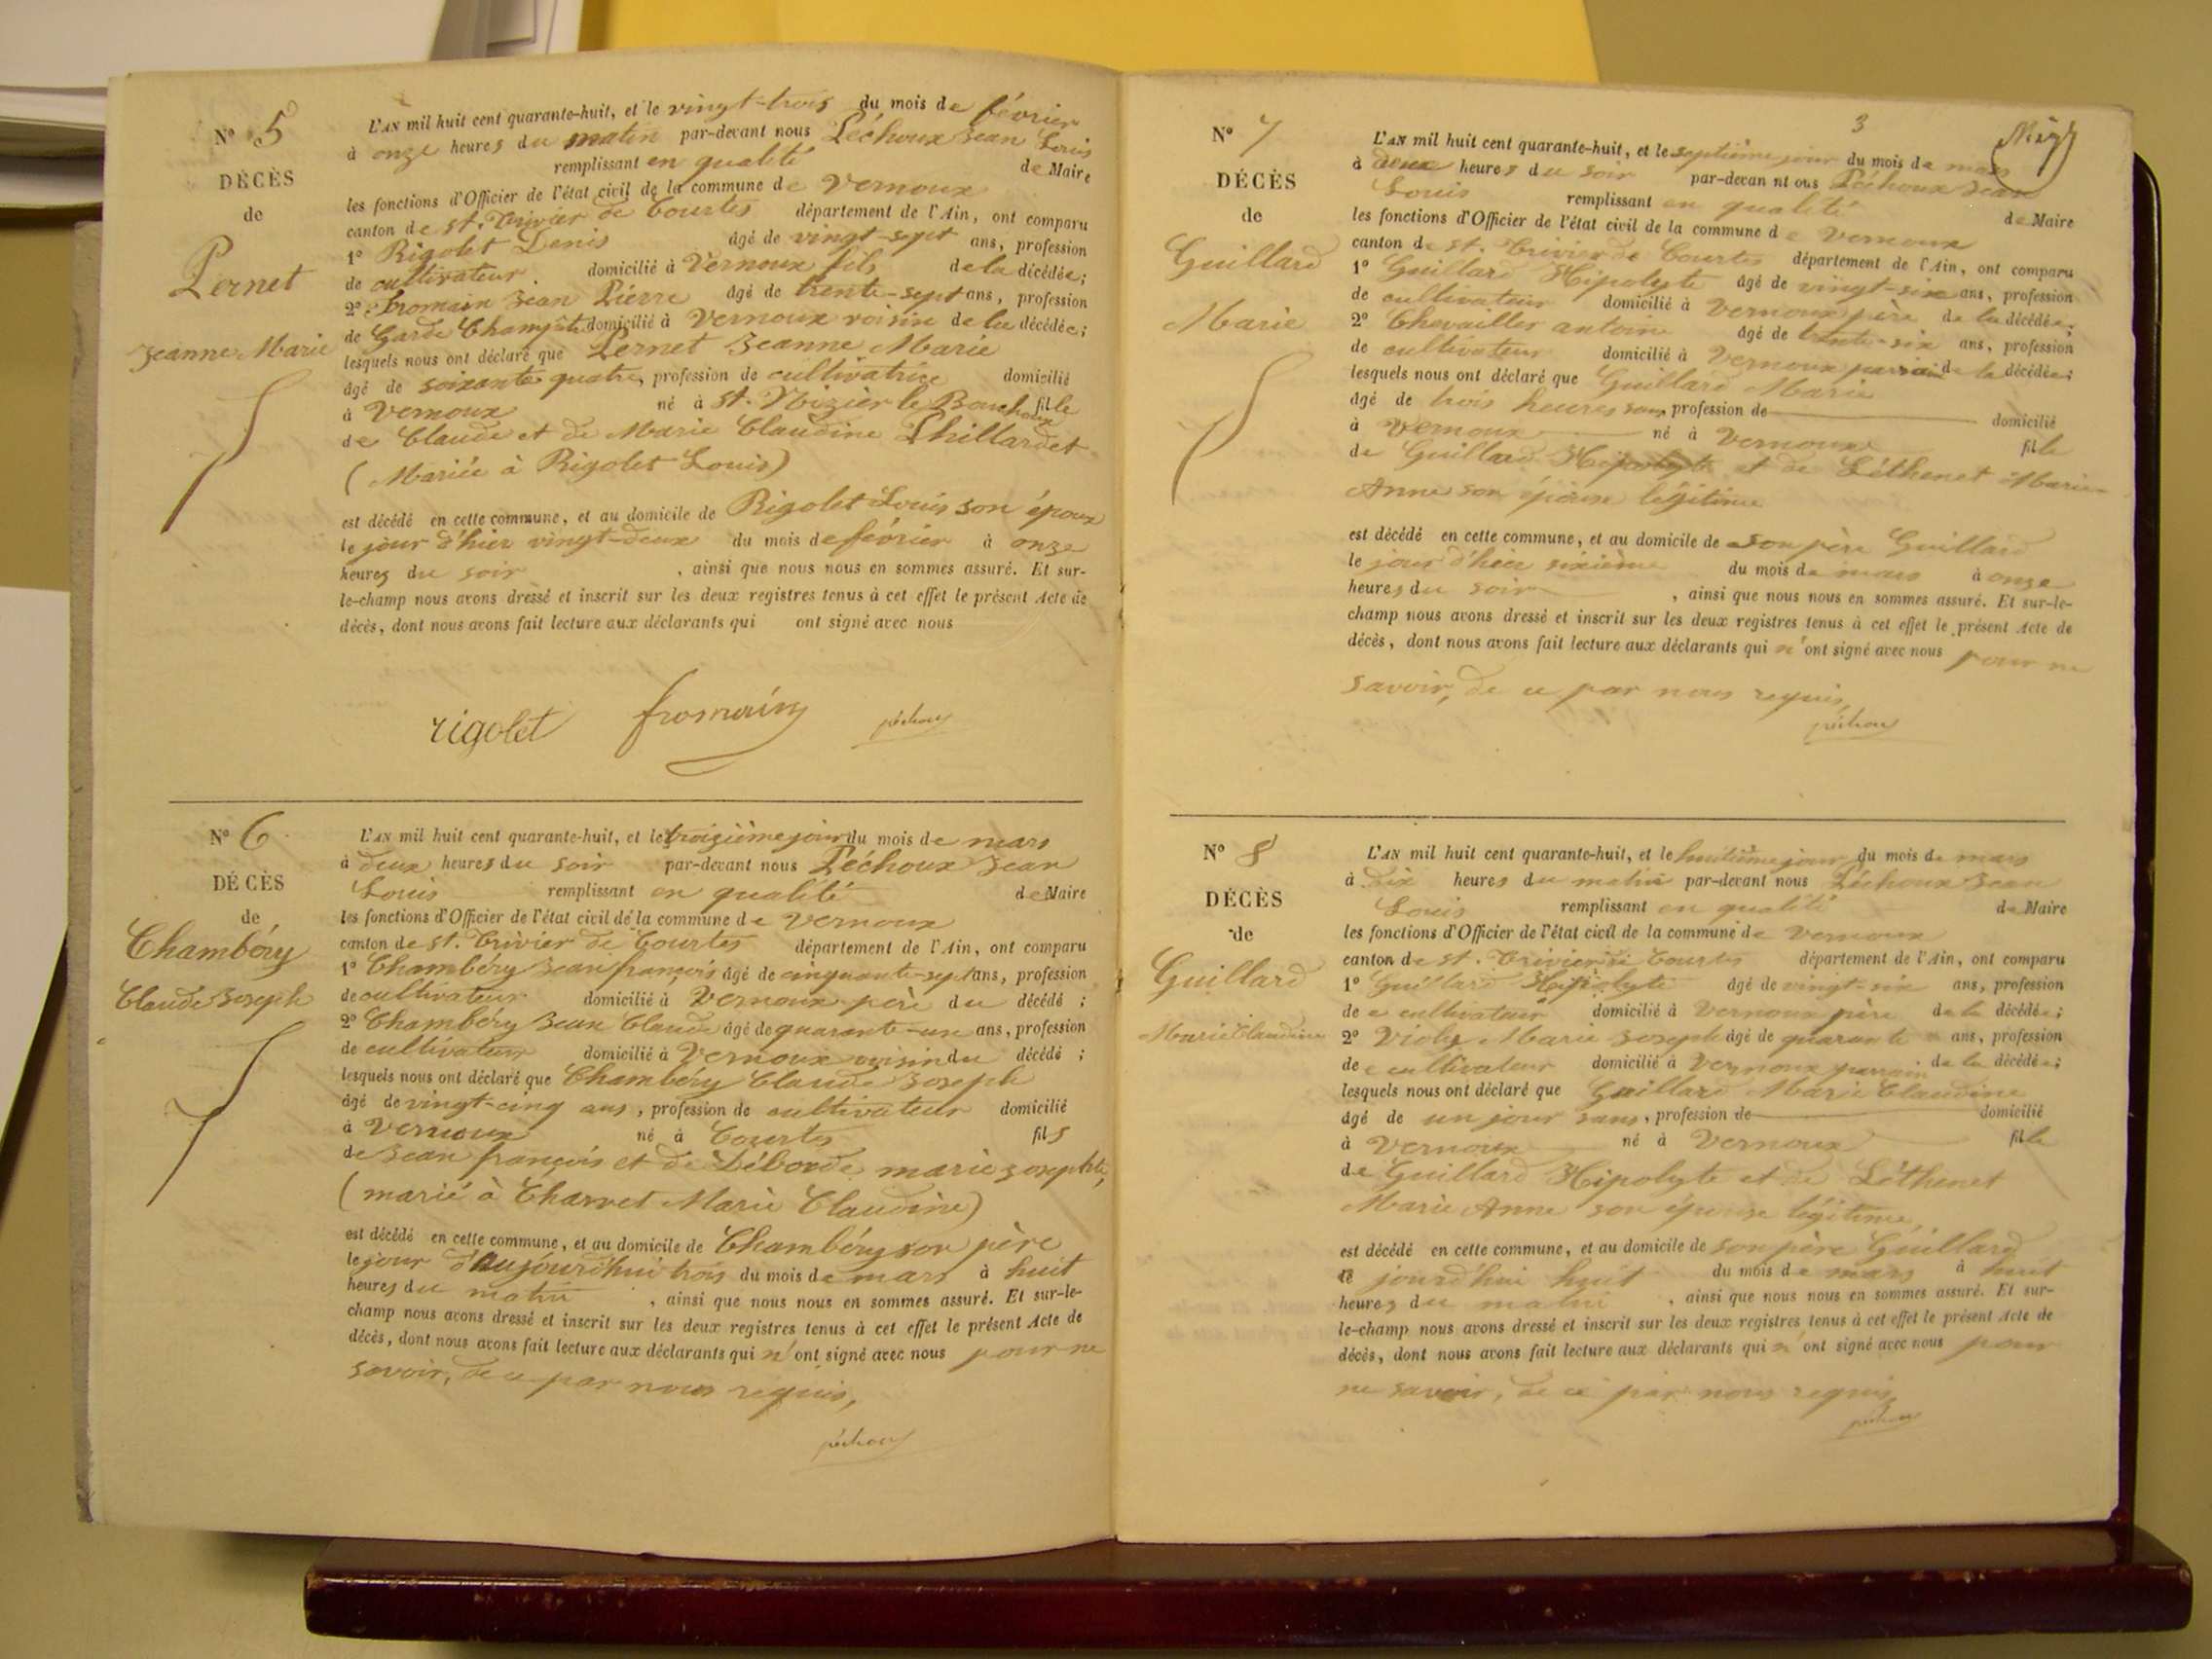 N° 5
DÉCÈS
de
Pernet
Jeanne Marie
L'AN mil huit cent quarante-huit, et le vingt-trois du mois de février
à onze heures du matin par-devant nous Péchoux Jean Louis
remplissant en qualité de Maire
les fonctions d'Officier de l'état civil de la commune de Vernoux
canton de St. Trivier de Courtes département de l'Ain, ont comparu
1° Rigolet Denis âgé de vingt-sept ans, profession
de cultivateur domicilié à Vernoux fils de la décédée;
2° Fromain Jean Pierre âgé de trente-sept ans, profession
de Garde Champêtre domicilié à Vernoux voisin de la décédée;
lesquels nous ont déclaré que Pernet Jeanne Marie
âgé de soixante quatre, profession de cultivatrice domicilié
à Vernoux né à St. Nizier le Bouchoux fille
de Claude et de Marie Claudine Phillardet
(Mariée à Rigolet Louis)
est décédé en cette commune, et au domicile de Rigolet Louis son époux
le jour d'hier vingt-deux du mois de février à onze
heures du soir, ainsi que nous nous en sommes assuré. Et sur-
le-champ nous avons dressé et inscrit sur les deux registres tenus à cet effet le présent Acte de
décès, dont nous avons fait lecture aux déclarants qui ont signé avec nous
rigolet fromain péchoux
N° 6
DÉCÈS
de
Chambéry
Claude Joseph
L'AN mil huit cent quarante-huit, et le troizième jour du mois de mars
à deux heures du soir par-devant nous Péchoux Jean
Louis remplissant en qualité de Maire
les fonctions d'Officier de l'état civil de la commune de Vernoux
canton de St. Trivier de Courtes département de l'Ain, ont comparu
1° Chambéry Jean françois âgé de cinquante-sept ans, profession
de cultivateur domicilié à Vernoux père du décédé ;
2° Chambéry Jean Claude âgé de quarante-un ans, profession
de cultivateur domicilié à Vernoux voisin du décédé ;
lesquels nous ont déclaré que Chambéry Claude Joseph
âgé de vingt-cinq ans, profession de cultivateur domicilié
à Vernoux né à Courtes fils
de Jean françois et de Déborde marie josephte,
(marié à Charvet Marie Claudine)
est décédé en cette commune, et au domicile de Chambéry son père
le jour d'aujourd'hui trois du mois de mars à huit
heures du matin, ainsi que nous nous en sommes assuré. Et sur-le-
champ nous avons dressé et inscrit sur les deux registres tenus à cet effet le présent Acte de
décès, dont nous avons fait lecture aux déclarants qui n'ont signé avec nous pour ne
savoir, de ce par nous requis,
péchoux
3
N° 7
DÉCÈS
de
Guillard
Marie
L'AN mil huit cent quarante-huit, et le septième jour du mois de mars
à deux heures du soir par-devan nt ous Péchoux Jean
Louis remplissant en qualité de Maire
les fonctions d'Officier de l'état civil de la commune de Vernoux
canton de St. Trivier de Courtes département de l'Ain, ont comparu
1° Guillard Hipolyte âgé de vingt-six ans, profession
de cultivateur domicilié à Vernoux père de la décédée;
2° Chevailler antoine âgé de trente-six ans, profession
de cultivateur domicilié à Vernoux parrain de la décédée;
lesquels nous ont déclaré que Guillard Marie
âgé de trois heures sans profession de domicilié
à Vernoux né à Vernoux fille
de Guillard Hipolyte et de Léthenet Marie-
Anne son épouse légitime
est décédé en cette commune, et au domicile de son père Guillard
le jour d'hier sixième du mois de mars à onze
heures du soir, ainsi que nous nous en sommes assuré. Et sur-le-
champ nous avons dressé et inscrit sur les deux registres tenus à cet effet le présent Acte de
décès, dont nous avons fait lecture aux déclarants qui n'ont signé avec nous pour ne
savoir, de ce par nous requis,
péchoux
N° 8
DÉCÈS
de
Guillard
Marie Claudine
L'AN mil huit cent quarante-huit, et le huitième jour du mois de mars
à dix heures du matin par-devant nous Péchoux Jean
Louis remplissant en qualité de Maire
les fonctions d'Officier de l'état civil de la commune de Vernoux
canton de St. Trivier de Courtes département de l'Ain, ont comparu
1° Guillard Hipolyte âgé de vingt-six ans, profession
de cultivateur domicilié à Vernoux père de la décédée;
2° Violy Marie Joseph âgé de quarante ans, profession
de cultivateur domicilié à Vernoux parrain de la décédée;
lesquels nous ont déclaré que Guillard Marie Claudine
âgé de un jour sans, profession de domicilié
à Vernoux né à Vernoux fille
de Guillard Hipolyte et de Léthenet
Marie Anne son épouse légitime,
est décédé en cette commune, et au domicile de son père Guillard
le jourd'hui huit du mois de mars à huit
heures du matin, ainsi que nous nous en sommes assuré. Et sur-
le-champ nous avons dressé et inscrit sur les deux registres tenus à cet effet le présent Acte de
décès, dont nous avons fait lecture aux déclarants qui n'ont signé avec nous pour
ne savoir, de ce par nous requis,
péchoux